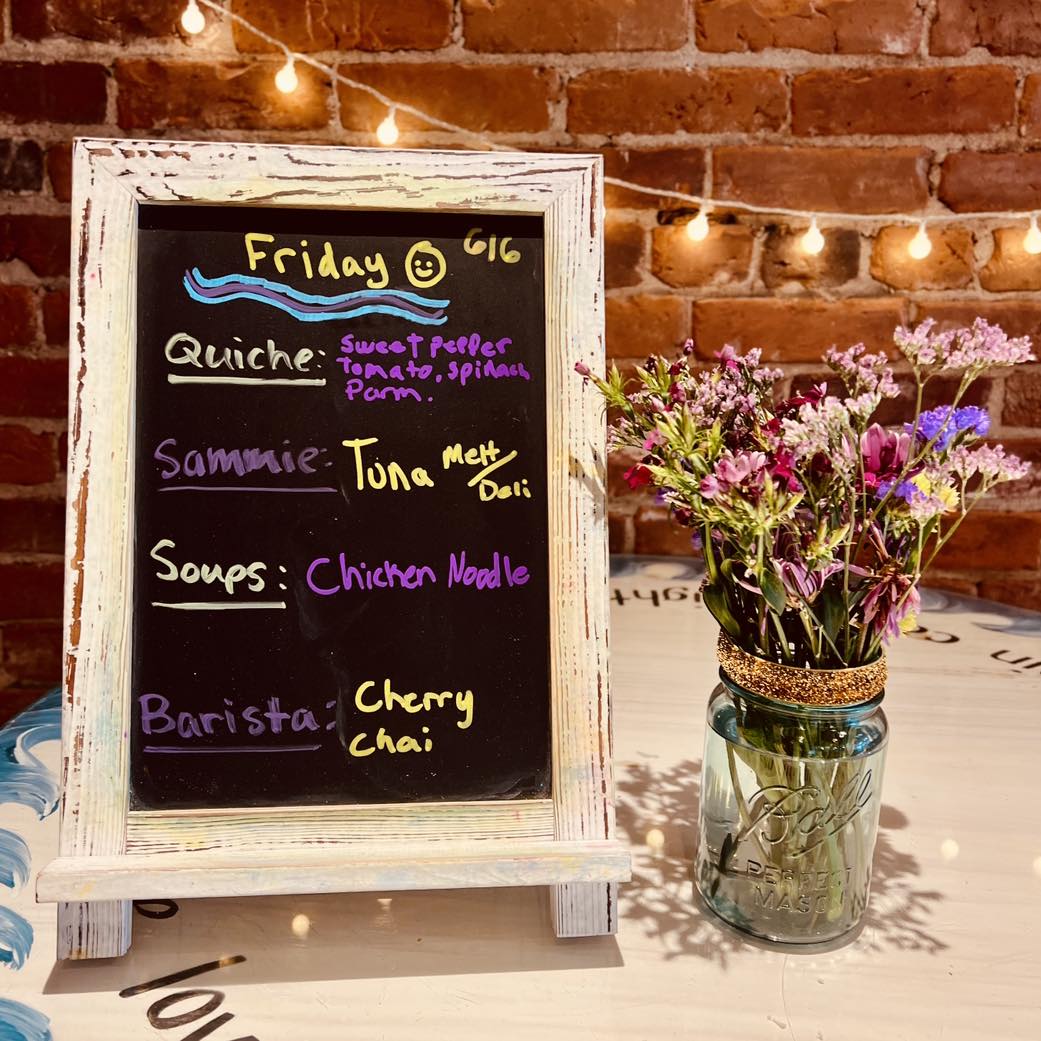 Friday 6/6
Quiche: Sweet pepper
Tomato, spinach
Parm.
Sammie: Tuna Melt/
Deli
Soups: Chicken Noodle
Barista: Cherry
Chai
Ball
PERFECT
MASON
in